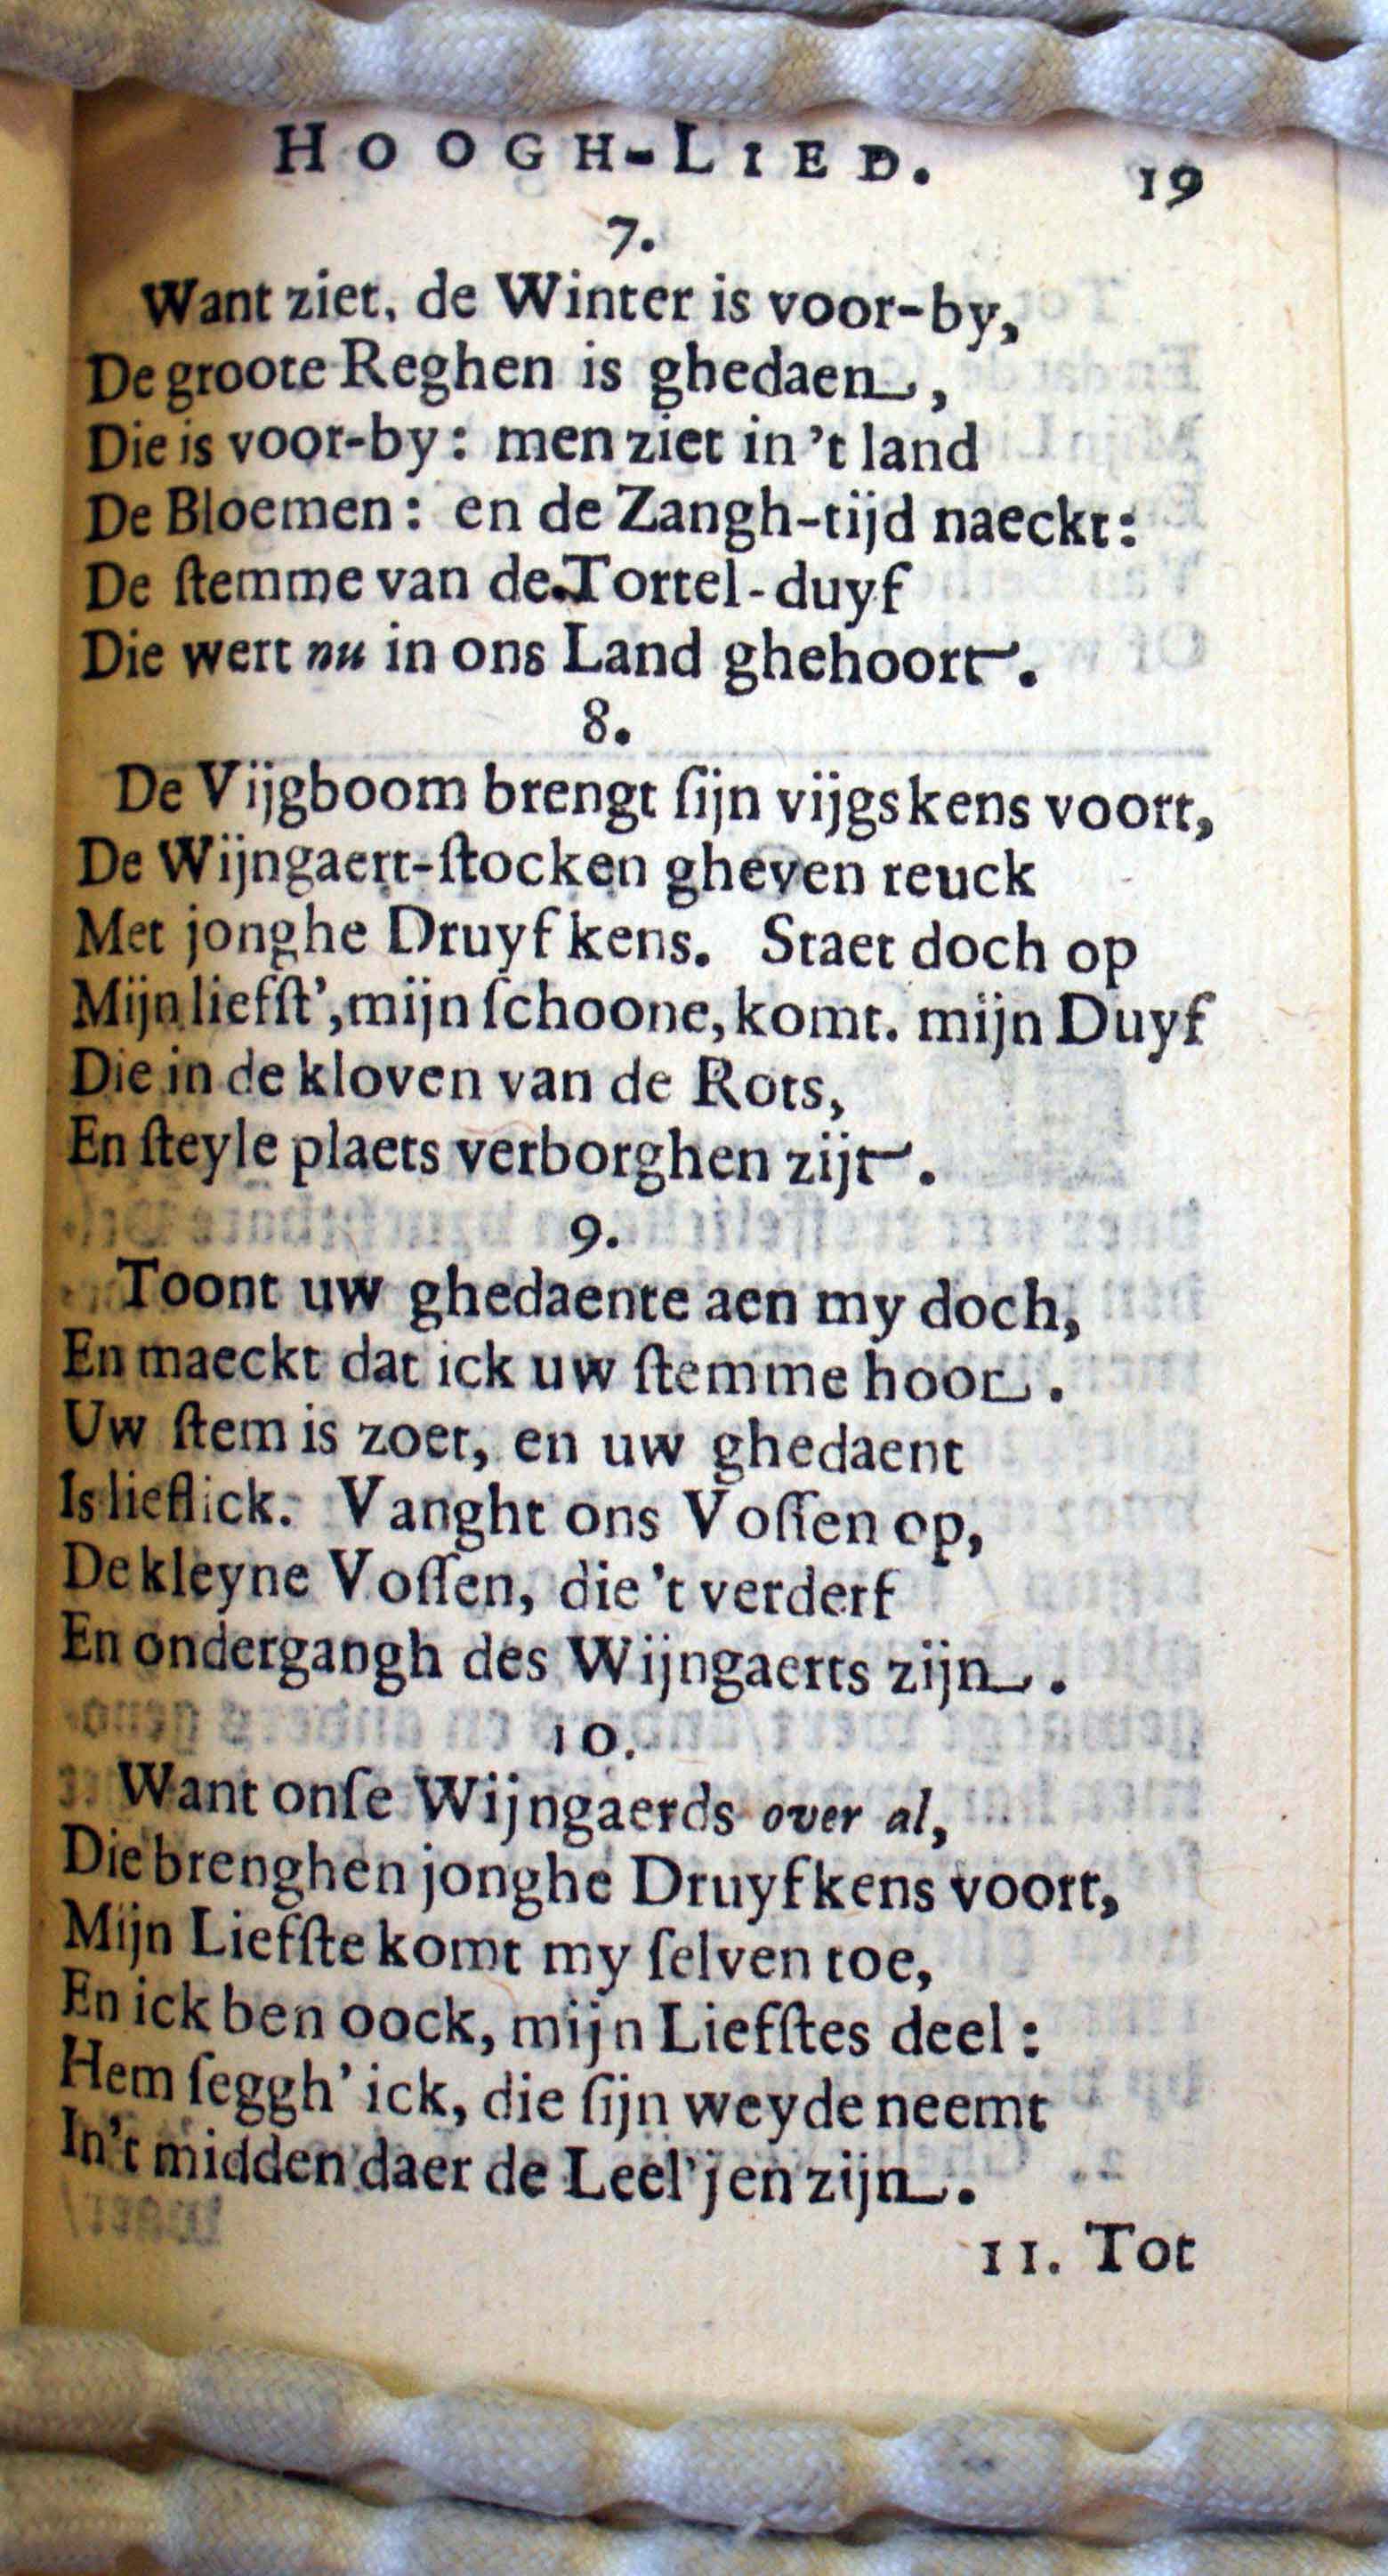 HOOGH-LIED. 19
7.
Want ziet, de Winter is voor-by,
De groote Reghen is ghedaen,
Die is voor-by: men ziet in 't land
De Bloemen: en de Zangh-tijd naeckt:
De ſtemme van de Tortel-duyf
Die wert nu in ons Land ghehoort.
8.
De Vijgboom brengt ſijn vijgskens voort,
De Wijngaert-ſtocken gheven reuck
Met jonghe Druyfkens. Staet doch op
Mijn liefſt', mijn ſchoone, komt. mijn Duyf
Die in de kloven van de Rots,
En ſteyle plaets verborghen zijt.
9.
Toont uw ghedaente aen my doch,
En maeckt dat ick uw ſtemme hoor.
Uw ſtem is zoet, en uw ghedaent
Is lieflick. Vanght ons Voſſen op,
De kleyne Voſſen, die 't verderf
En ondergangh des Wijngaerts zijn.
10.
Want onſe Wijngaerds over al,
Die brenghen jonghe Druyfkens voort,
Mijn Liefſte komt my ſelven toe,
En ick ben oock, mijn Liefſtes deel:
Hem ſeggh' ick, die ſijn weyde neemt
In't midden daer de Leel'jen zijn.
11. Tot